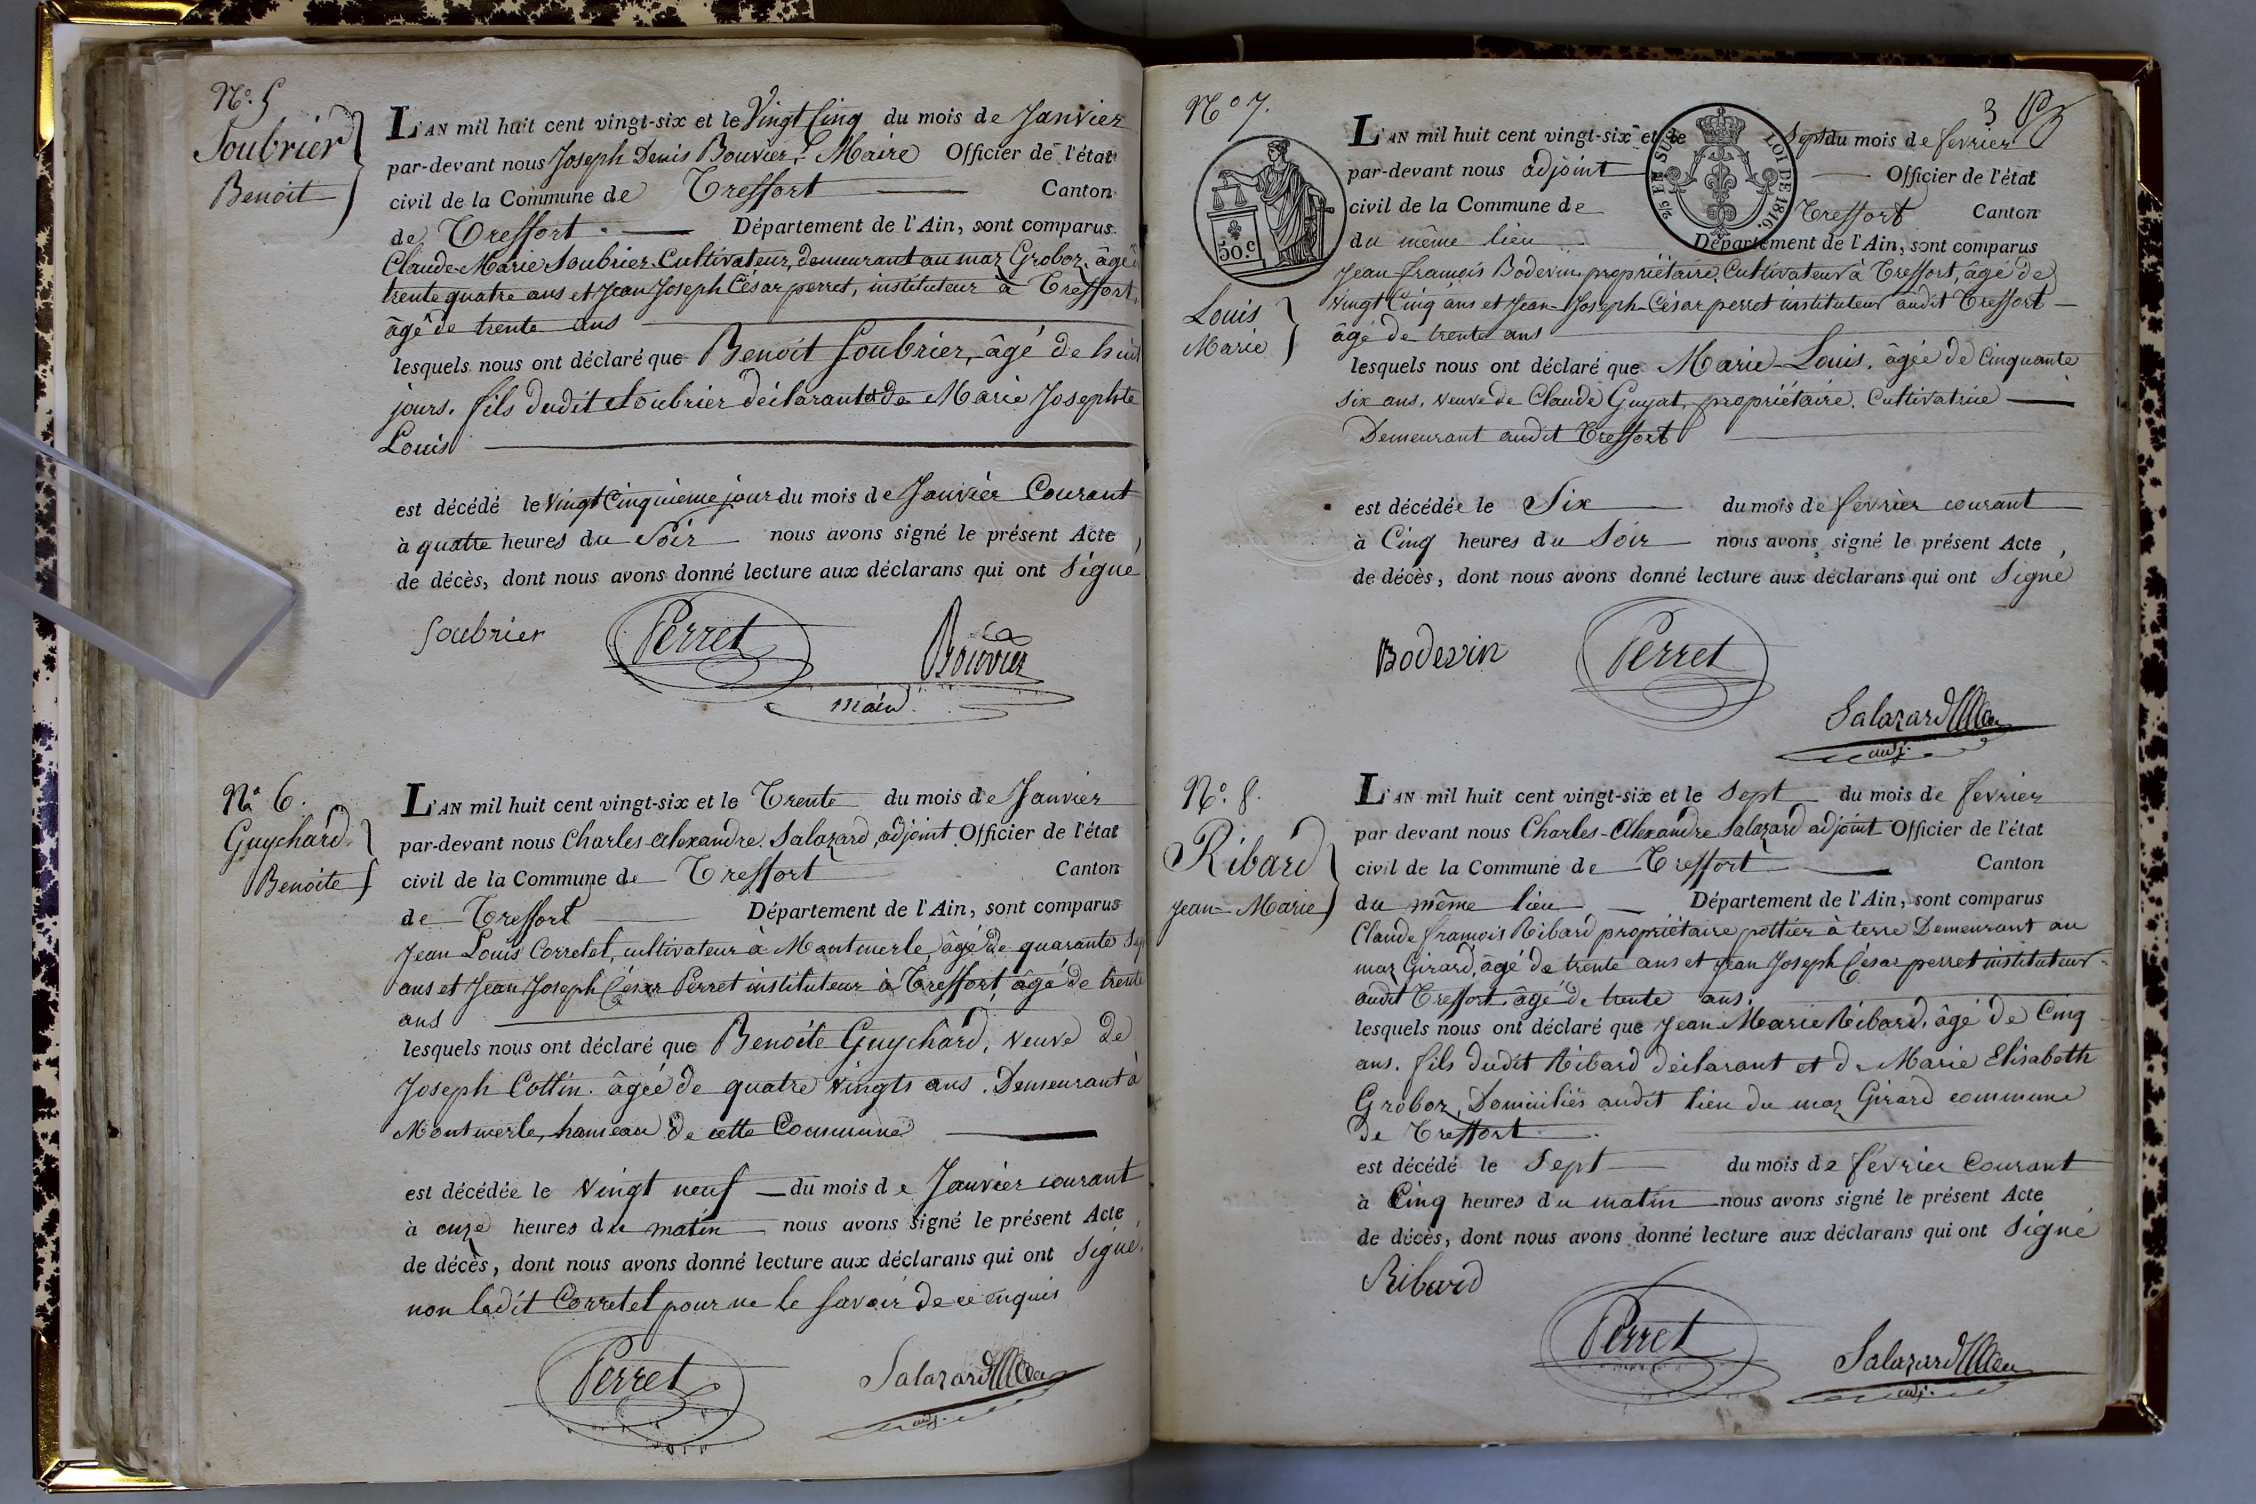 N.º 5
Soubrier
Benoit
L'AN mil huit cent vingt-six et le Vingt Cinq du mois de Janvier
par-devant nous Joseph Denis Bouvier, Maire Officier de l'état
civil de la Commune de Treffort Canton
de Treffort Département de l'Ain, sont comparus
Claude-Marie Soubrier Cultivateur, demeurant au maz Groboz, âgé de
trente quatre ans et Jean Joseph César perret, instituteur à Treffort,
âgé de trente ans
lesquels nous ont déclaré que Benoit Soubrier, âgé de huit
jours, fils dudit Soubrier déclarant et de Marie Josephte
Louis
est décédé le Vingt Cinquieme jour du mois de Janvier Courant
à quatre heures du Soir nous avons signé le présent Acte
de décès, dont nous avons donné lecture aux déclarans qui ont Signé
Soubrier Perret Bouvier
maire
N.º 6.
Guychard
Benoite
L'AN mil huit cent vingt-six et le Trente du mois de Janvier
par-devant nous Charles-Alexandre Salazard, adjoint Officier de l'état
civil de la Commune de Treffort Canton
de Treffort Département de l'Ain, sont comparus
Jean Louis Corretel, cultivateur à Montmerle, âgé de quarante Sept
ans et Jean Joseph César Perret instituteur à Treffort, âgé de trente
ans
lesquels nous ont déclaré que Benoite Guychard, veuve de
Joseph Cottin, âgée de quatre vingts ans, Demeurant à
Montmerle, hameau de cette Commune
est décédée le vingt neuf du mois de Janvier courant
à onze heures du matin nous avons signé le présent Acte
de décès, dont nous avons donné lecture aux déclarans qui ont Signé,
non ledit Corretel pour ne le savoir de ce enquis
Perret Salazard
adj.
N.º 7.
3
50.c
EN SUS
LOI DE 1816.
Louis
Marie
L'AN mil huit cent vingt-six et le Sept du mois de fevrier
par-devant nous adjoint Officier de l'état
civil de la Commune de Treffort Canton
du même lieu Département de l'Ain, sont comparus
Jean françois Bodevin propriétaire, Cultivateur à Treffort, âgé de
vingt Cinq ans et Jean-Joseph-César perret instituteur audit Treffort
âgé de trente ans
lesquels nous ont déclaré que Marie-Louis, âgée de Cinquante
six ans, veuve de Claude Guyat, propriétaire, Cultivatrice
Demeurant audit Treffort
est décédée le Six du mois de fevrier courant
à Cinq heures du Soir nous avons signé le présent Acte
de décès, dont nous avons donné lecture aux déclarans qui ont Signé
Bodevin Perret
Salazard
adj.
N.º 8.
Ribard
Jean-Marie
L'AN mil huit cent vingt-six et le Sept du mois de fevrier
par devant nous Charles-Alexandre Salazard adjoint Officier de l'état
civil de la Commune de Treffort Canton
du même lieu Département de l'Ain, sont comparus
Claude françois Ribard propriétaire pottier à terre Demeurant au
maz Girard, âgé de trente ans et Jean Joseph César perret instituteur
audit Treffort, âgé de trente ans.
lesquels nous ont déclaré que Jean-Marie Ribard, âgé de Cinq
ans, fils dudit Ribard déclarant et de Marie Elisabeth
Groboz, Domiciliés audit lieu du maz Girard commune
de Treffort
est décédé le Sept du mois de février Courant
à Cinq heures du matin nous avons signé le présent Acte
de décès, dont nous avons donné lecture aux déclarans qui ont Signé
Ribard
Perret Salazard
adj.